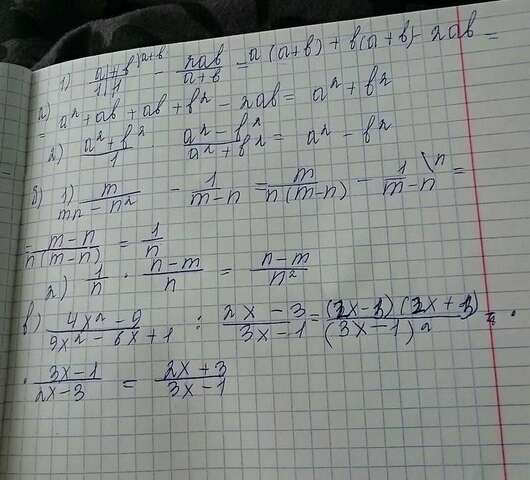 1) (a+b)/(1\1)^{a+b} - 2ab/(a+b) = a(a+b) + b(a+b) - 2ab =
а) = a² + ab + ab + b² - 2ab = a² + b²
2) (a² + b²)/1 (a² - b²)/(a² + b²) = a² - b²
б) 1) m/(mn - n²) - 1/(m-n) = m/(n(m-n)) - 1/(m-n) \n =
= (m-n)/(n(m-n)) = 1/n
2) 1/n · (n-m)/n = (n-m)/n²
в) (4x² - 9)/(9x² - 6x + 1) : (2x - 3)/(3x - 1) = (2x-3)(2x+3)/(3x-1)² ·
· (3x-1)/(2x-3) = (2x+3)/(3x-1)